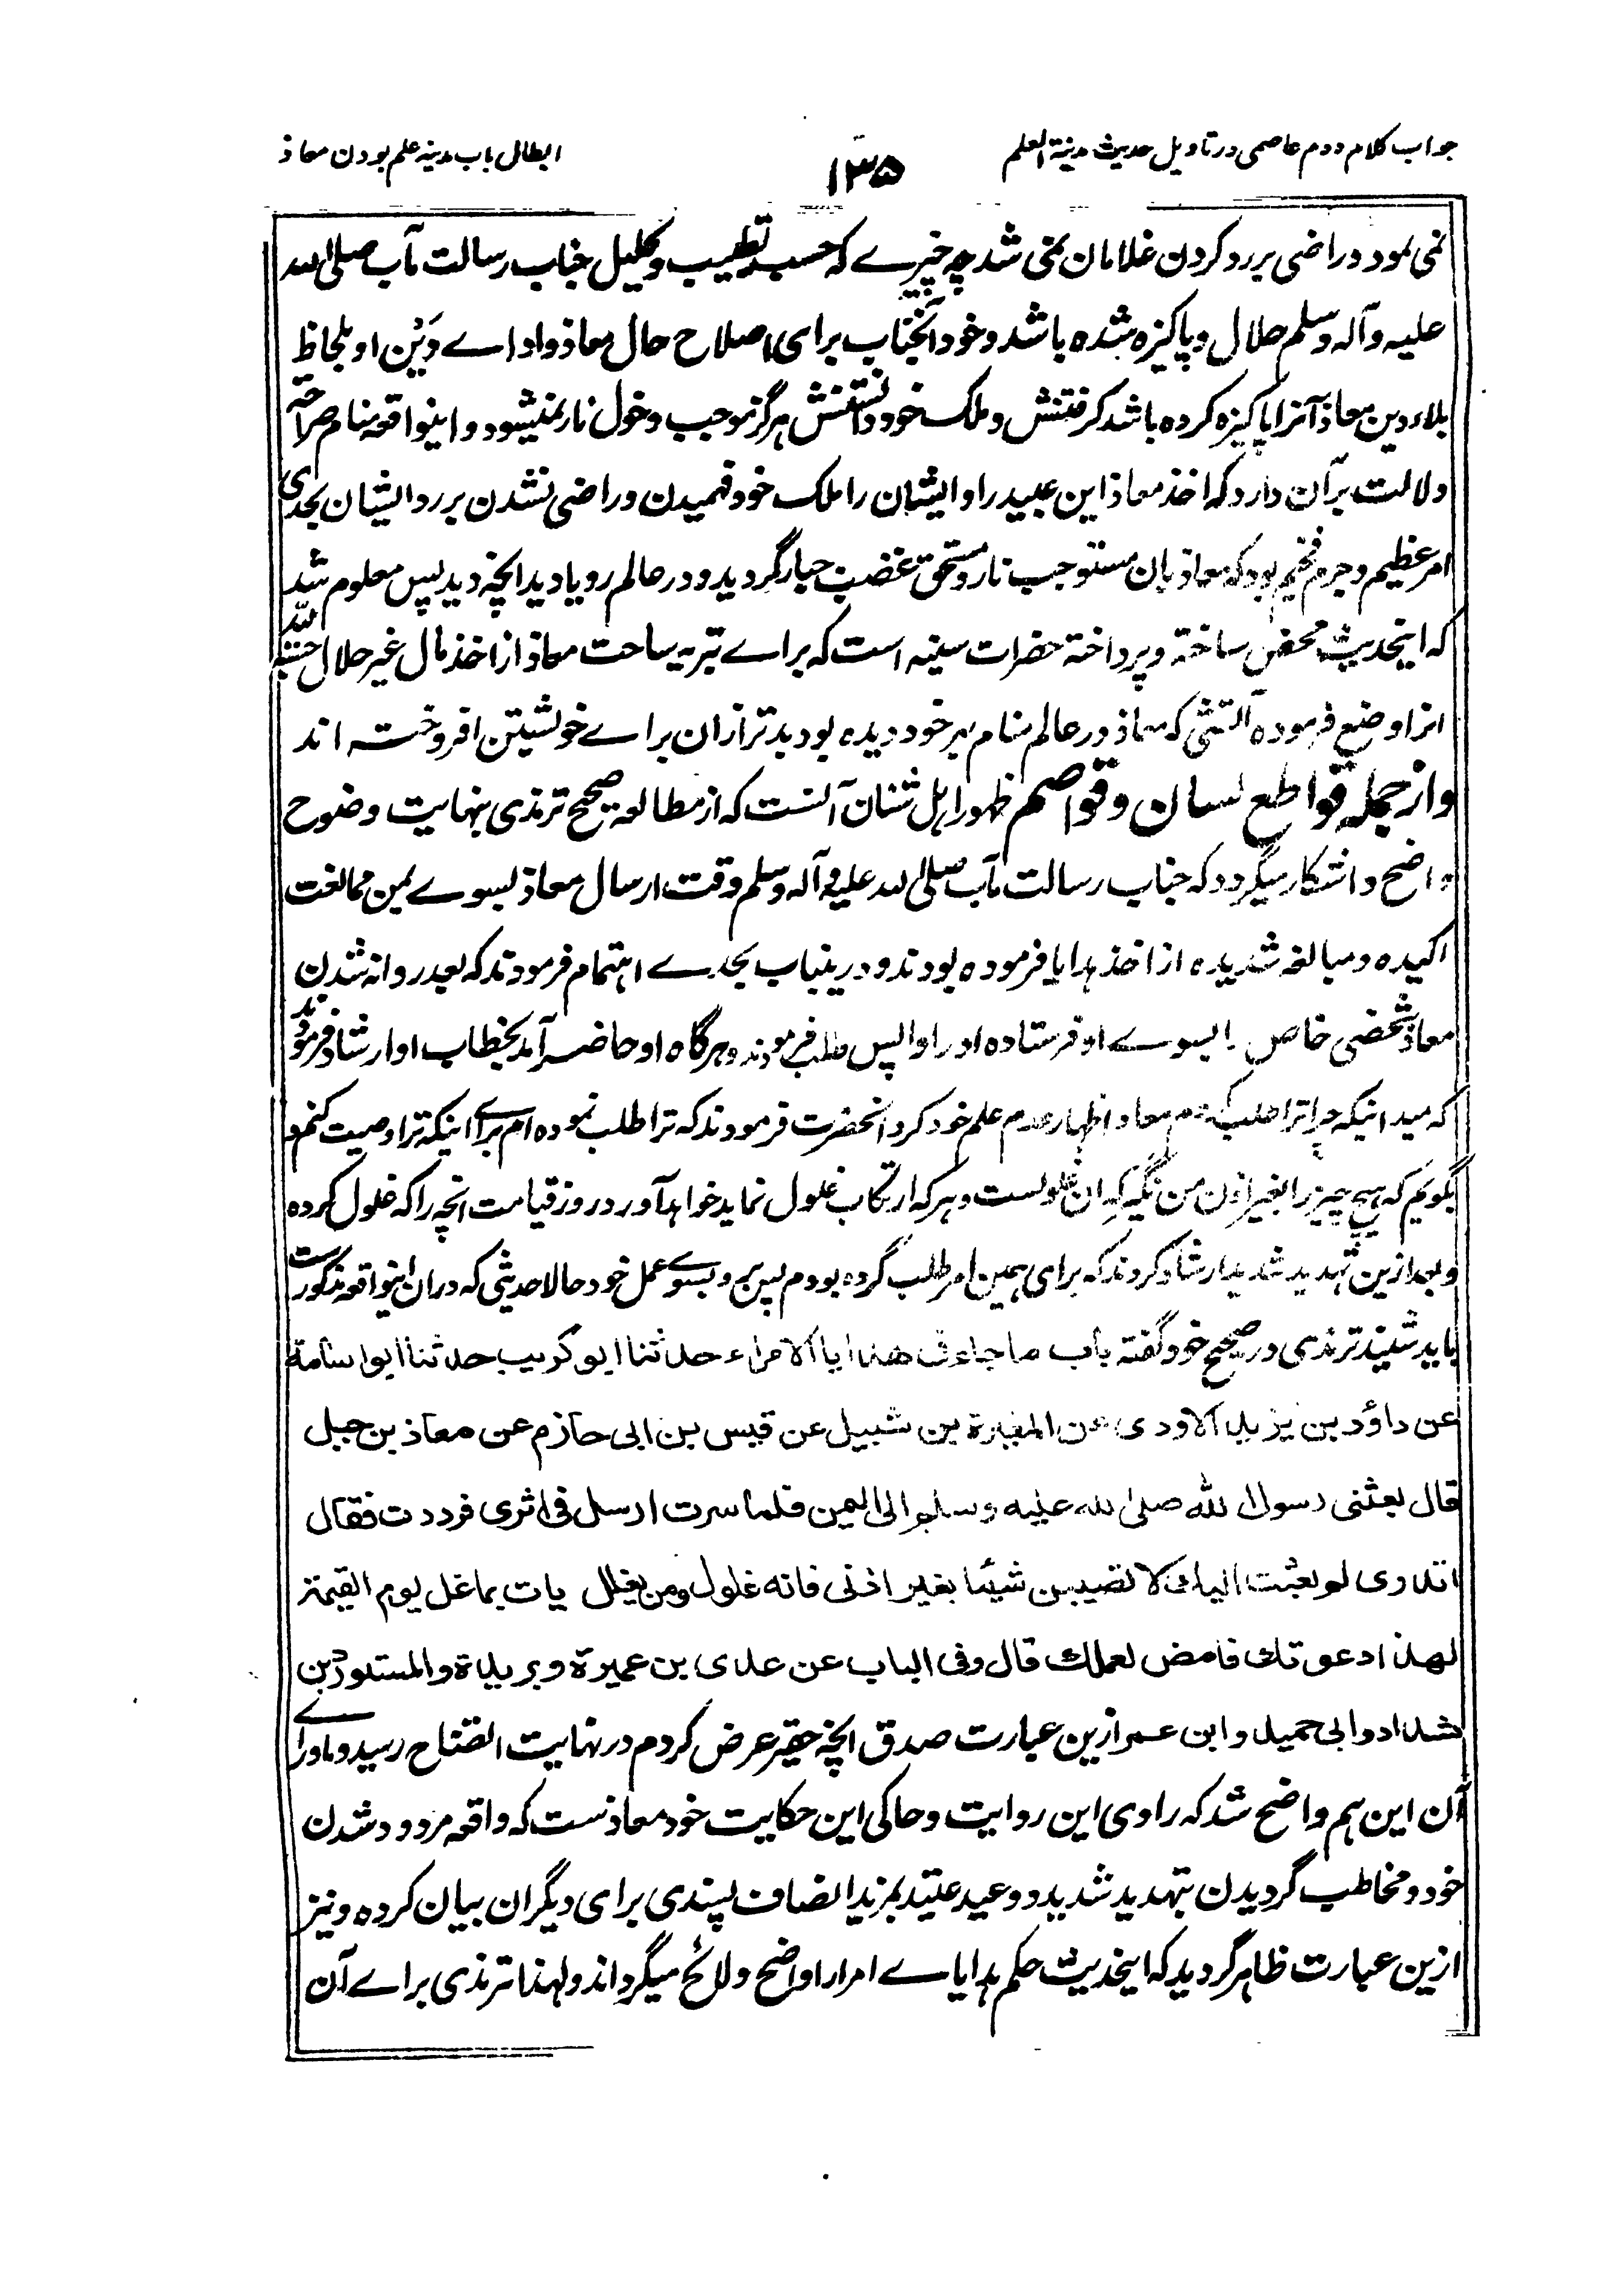 جواب کلام دوم عاصمی در تاویل حدیث مدینة العلم
۱۳۵
ابطال باب مدینه علم بودن معاذ
نمی نمود و راضی برد کردن غلامان نمی شد چه چیزے که حسب تطییب و تحلیل جناب رسالت مآب صلی الله
علیه و آله وسلم حلال و پاکیزه شده باشد و خود آنجناب برای اصلاح حال معاذ و اداے دَیْن او بلحاظ
بلاء دین معاذ آنرا پاکیزه کرده باشد گرفتنش و ملک خود دانستنش هرگز موجب دخول نار نمیشود و اینواقعه منام صراحةً
دلالت برآن دارد که اخذ معاذ این عبید را و ایشان را ملک خود فهمیدن و راضی نشدن برد ایشان بحدی
امر عظیم و جرم فخیم بود که معاذ بان مستوجب نار و مستحق غضب جبار گردیده و در عالم رویا دید انچه دید پس معلوم شد
که اینحدیث محض ساخته و پرداخته حضرات سنیه است که براے تبریه ساحت معاذ از اخذ مال غیر حلال حسبة لله
انرا وضع فرموده آتشی که معاذ در عالم منام بهر خود دیده بود بدتر ازان براے خویشتن افروخته اند
واز جمله قواطع لسان و قواصم ظهور اهل شنان آنست که از مطالعه صحیح ترمذی بنهایت وضوح
واضح و اشکار میگردد که جناب رسالت مآب صلی الله علیه و آله وسلم وقت ارسال معاذ بسوے یمن ممانعت
اکیده و مبالغه شدیده از اخذ هدایا فرموده بودند و درینباب بحدے اهتمام فرمودند که بعد روانه شدن
معاذ شخصی خاص بسوے او فرستاده او را واپس طلب فرمودند و هرگاه او حاضر آمد بخطاب او ارشاد فرمودند
که میدانیکه چرا ترا طلب کردم معاذ اظهار عدم علم خود کرد انحضرت فرمودند که ترا طلب نموده ام براے اینکه ترا وصیت کنم و
بگویم که هیچ چیز را بغیر اذن من نگیر که ان غلولست و هرکه ارتکاب غلول نماید خواهد آورد در روز قیامت انچه را که غلول کرده
و بعد ازین تهدید شدید ارشاد کردند که برای همین امر طلب کرده بودم پس برو بسوے عمل خود حالا حدیثی که دران اینواقعه مذکورست
باید شنید ترمذی در صحیح خود گفته باب ما جاء فی هدایا الامراء حدثنا ابو کریب حدثنا ابو اسامة
عن داؤد بن یزید الاودی عن المغیرة بن شبیل عن قیس بن ابی حازم عن معاذ بن جبل
قال بعثنی رسول الله صلی الله علیه وسلم الی الیمن فلما سرت ارسل فی اثری فرددت فقال
اتدری لم بعثت الیك لا تصیبن شیئا بغیر اذنی فانه غلول ومن یغلل یات بما غل یوم القیمة
لهذا دعوتك فامض لعملك قال وفی الباب عن عدی بن عمیرة و بریدة والمستورد بن
شداد و ابی حمید و ابن عمر ازین عبارت صدق انچه حقیر عرض کردم در نهایت افتضاح رسید و ماوراے
آن این هم واضح شد که راوی این روایت و حاکی این حکایت خود معاذست که واقعه مردود شدن
خود و مخاطب گردیدن بتهدید شدید و وعید عتید بمزید انصاف پسندی برای دیگران بیان کرده و نیز
ازین عبارت ظاهر گردید که اینحدیث حکم هدایاے امرا را واضح و لائح میگرداند و لهذا ترمذی براے آن